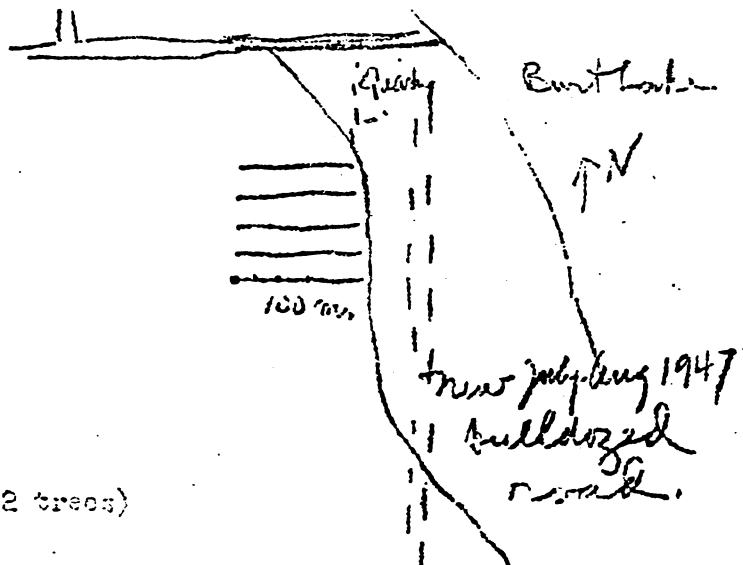 Burt Lake
N
100 m.
new July-Aug 1947
bulldozed
road.
2 trees)